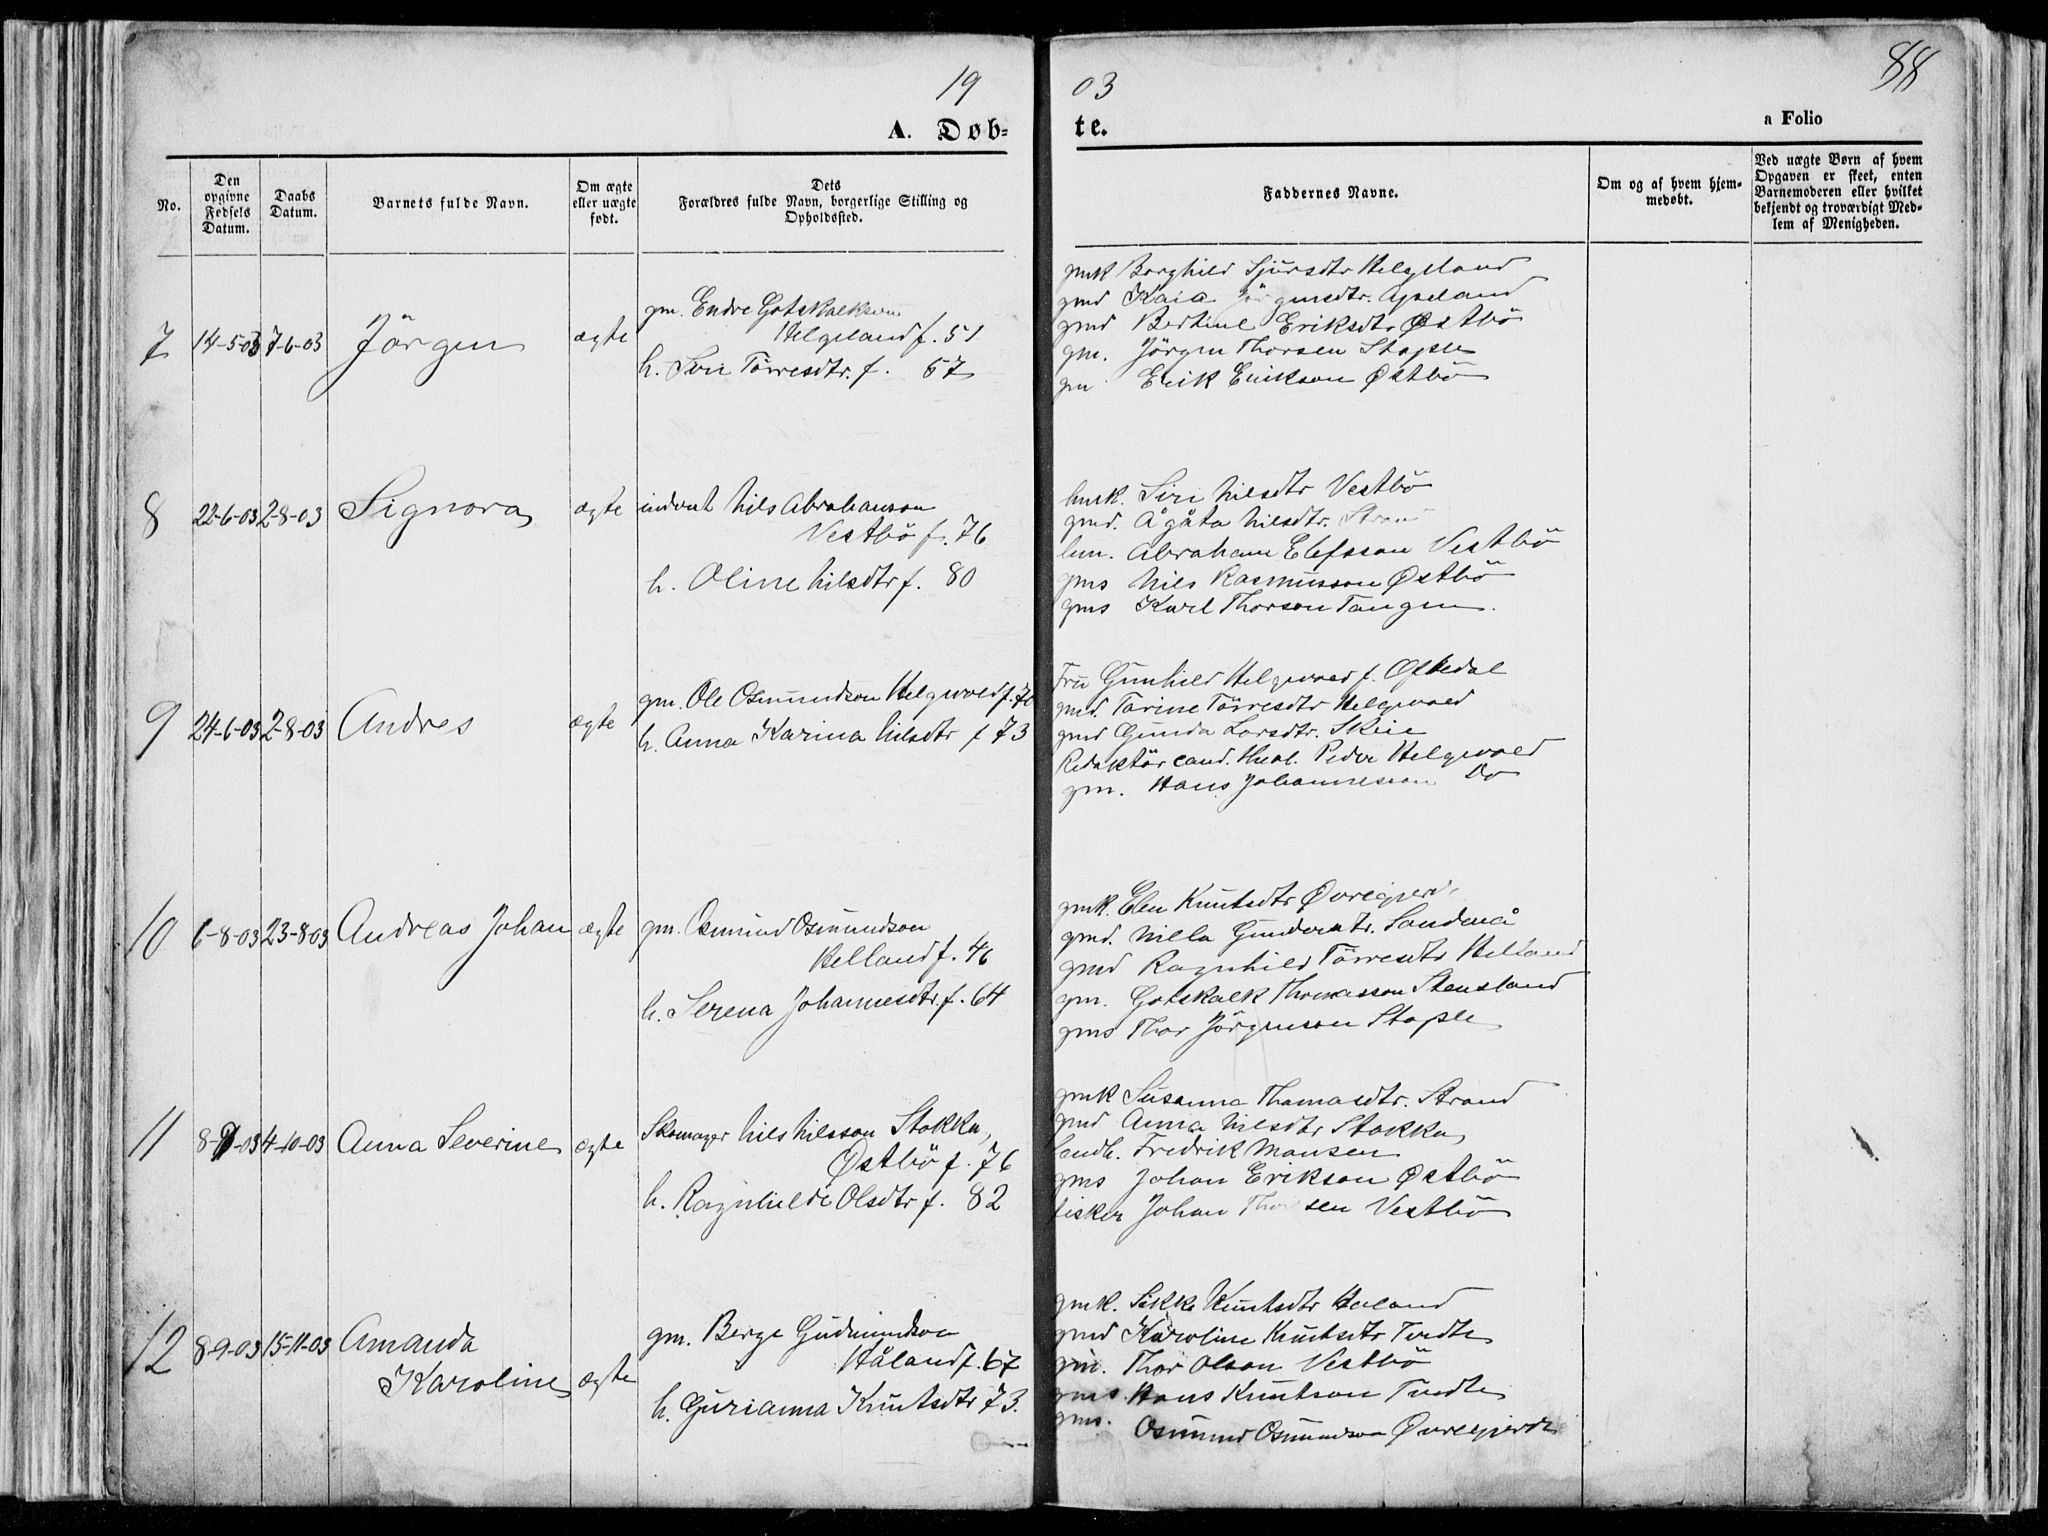 19 03
88
A. Døb- te.
a Folio
No.
Den opgivne Fødsels Datum.
Daabs Datum.
Barnets fulde Navn.
Om ægte eller uægte født.
Dets Forældres fulde Navn, borgerlige Stilling og Opholdssted.
Faddernes Navne.
Om og af hvem hjemmedøbt.
Ved uægte Børn af hvem Opgaven er skeet, enten Barnemoderen eller hvilket bekjendt og troværdigt Medlem af Menigheden.
7 14-5-03 7-6-03 Jörgen ægte
gm. Endre Gotskalksen
Helgeland f. 51
h. Siri Törresdtr. f. 67
gmk Borghild Sjursdtr Helgeland
gmd Kaia Jörgensdtr. Apeland
gmd Bertine Eriksdtr Østbö
gm. Jörgen Thorsen Staple
gm Erik Erikson Østbö
8 22-6-03 2-8-03 Signora ægte
inderst Nils Abrahamson
Vestbö f. 76
h. Oline Nilsdtr f. 80
hmk. Siri Nilsdtr Vestbö
gmd. Ågåta Nilsdtr. Strand
hm. Abraham Elefsson Vestbö
gms Nils Rasmusson Østbö
gms Karl Thorson Tangen.
9 24-6-03 2-8-03 Andres ægte
gm. Ole Osmundson Helgevold f. 70
h. Anna Karina Nilsdtr f 73
Fru Gunhild Helgevold f. Oftedal
gmd. Tarine Törresdtr Helgevold
gmd Gunda Larsdtr. Skeie
Redaktör cand. theol. Peder Helgevold
gm. Hans Johannesson Do
10 6-8-03 23-8-03 Andreas Johan ægte
gm. Osmund Osmundson
Helland f. 46
h. Serena Johannesdtr. f. 64
gmk. Elen Knutsdtr Øvregjerd
gmd. Nilla Gundersdtr. Sandenå
gmd Ragnhild Törresdtr Helland
gm. Gotskalk Thomasson Stensland
gms Thor Jörgenson Staple
11 8-9-03 4-10-03 Anna Severine ægte
Skomager Nils Nilsson Stokka,
Østbö f. 76
h. Ragnhilde Olsdtr f. 82
gmk Susanna Thomasdtr. Strand
gmd Anna Nilsdtr Stokka
landh. Fredrik Monsen
gms Johan Erikson Østbö
fisker Johan Thorsen Vestbö
12 8-9-03 15-11-03 Amanda
Karoline ægte
gm. Berge Gudmundson
Håland f. 67
h. Gurianna Knutsdtr 73.
gmk. Sikke Knutsdtr Haland
gmd Karoline Knutsdtr Tvedte
gm. Thor Olson Vestbö
gms. Hans Knutson Tvedte
gms. Osmund Osmundson Øvregjerde